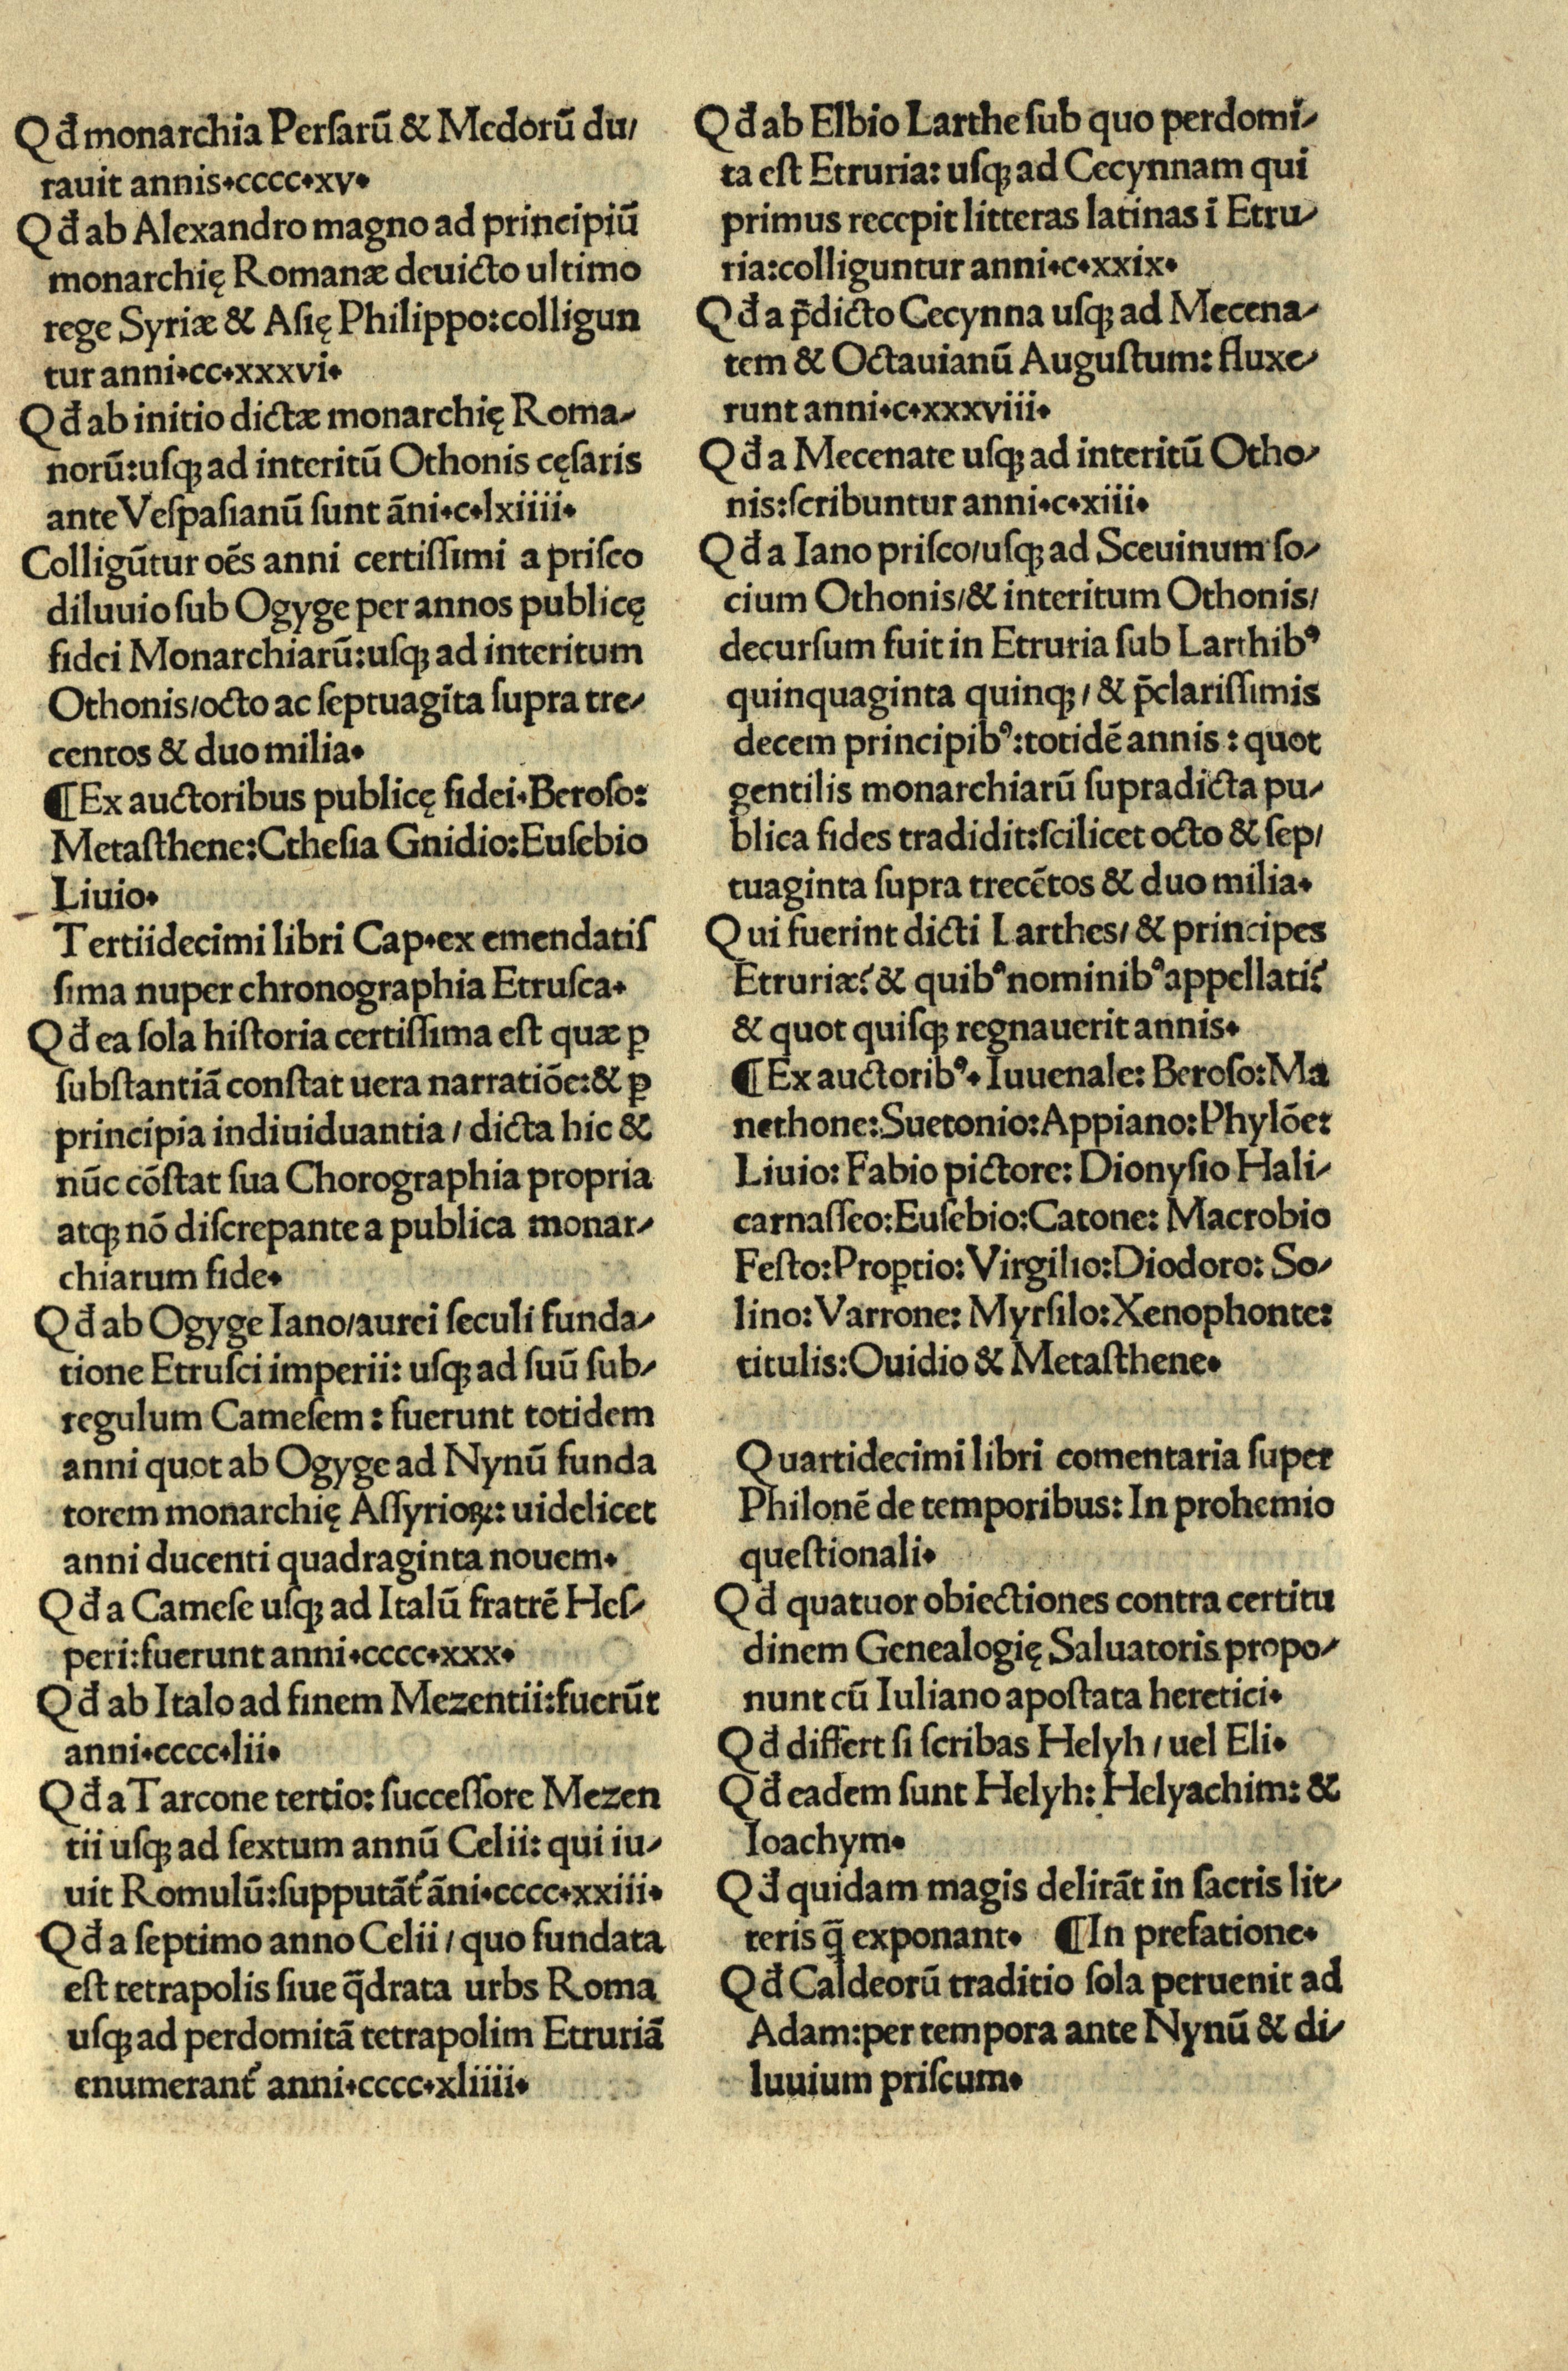 Qđ monarchia Perſarū & Medorū du/
rauit annis.cccc.xv.
Qđ ab Alexandro magno ad principiū
monarchię Romanæ deuicto ultimo
rege Syriæ & Aſię Philippo:colligun
tur anni.cc.xxxvi.
Qđ ab initio dictæ monarchię Roma/
norū:uſqꝫ ad interitū Othonis cęſaris
ante Veſpaſianū ſunt āni.c.lxiiii.
Colligūtur oēs anni certiſſimi a priſco
diluuio ſub Ogyge per annos publicę
fidei Monarchiarū:uſqꝫ ad interitum
Othonis/octo ac ſeptuagīta ſupra tre/
centos & duo milia.
¶Ex auctoribus publicę fidei.Beroſo:
Metaſthene:Ctheſia Gnidio:Euſebio
Liuio.
Tertiidecimi libri Cap.ex emendatiſ
ſima nuper chronographia Etruſca.
Qđ ea ſola hiſtoria certiſſima eſt quæ ꝑ
ſubſtantiā conſtat uera narratiōe:& ꝑ
principia indiuiduantia / dicta hic &
nūc cōſtat ſua Chorographia propria
atqꝫ nō diſcrepante a publica monar/
chiarum fide.
Qđ ab Ogyge Iano/aurei ſeculi funda/
tione Etruſci imperii: uſqꝫ ad ſuū ſub/
regulum Cameſem: fuerunt totidem
anni quot ab Ogyge ad Nynū funda
torem monarchię Aſſyrioꝝ: uidelicet
anni ducenti quadraginta nouem.
Qđ a Cameſe uſqꝫ ad Italū fratrē Heſ/
peri:fuerunt anni.cccc.xxx.
Qđ ab Italo ad finem Mezentii:fuerūt
anni.cccc.lii.
Qđ a Tarcone tertio: ſucceſſore Mezen
tii uſqꝫ ad ſextum annū Celii: qui iu/
uit Romulū:ſupputāt᷑ āni.cccc.xxiii.
Qđ a ſeptimo anno Celii / quo fundata
eſt tetrapolis ſiue q̄drata urbs Roma
uſqꝫ ad perdomitā tetrapolim Etruriā
enumerant᷑ anni.cccc.xliiii.
Qđ ab Elbio Larthe ſub quo perdomi/
ta eſt Etruria: uſqꝫ ad Cecynnam qui
primus recepit litteras latinas ī Etru/
ria:colliguntur anni.c.xxix.
Qđ a p̄dicto Cecynna uſqꝫ ad Mecena/
tem & Octauianū Auguſtum: fluxe/
runt anni.c.xxxviii.
Qđ a Mecenate uſqꝫ ad interitū Otho/
nis:ſcribuntur anni.c.xiii.
Qđ a Iano priſco/uſqꝫ ad Sceuinum ſo/
cium Othonis/& interitum Othonis/
decurſum fuit in Etruria ſub Larthibꝰ
quinquaginta quinqꝫ / & p̄clariſſimis
decem principibꝰ:totidē annis : quot
gentilis monarchiarū ſupradicta pu/
blica fides tradidit:ſcilicet octo & ſep/
tuaginta ſupra trecētos & duo milia.
Qui fuerint dicti Larthes/ & principes
Etruriæ? & quibꝰ nominibꝰ appellati?
& quot quiſqꝫ regnauerit annis.
¶Ex auctoribꝰ. Iuuenale: Beroſo:Ma
nethone:Suetonio:Appiano:Phylōe:
Liuio: Fabio pictore: Dionyſio Hali/
carnaſſeo:Euſebio:Catone: Macrobio
Feſto:Proꝑtio: Virgilio:Diodoro: So/
lino: Varrone: Myrſilo:Xenophonte:
titulis:Ouidio & Metaſthene.
Quartidecimi libri comentaria ſuper
Philonē de temporibus: In prohemio
queſtionali.
Qđ quatuor obiectiones contra certitu
dinem Genealogię Saluatoris propo/
nunt cū Iuliano apoſtata heretici.
Qđ differt ſi ſcribas Helyh / uel Eli.
Qđ eadem ſunt Helyh: Helyachim: &
Ioachym.
Qđ quidam magis delirāt in ſacris lit/
teris q̄ exponant. ¶In prefatione.
Qđ Caldeorū traditio ſola peruenit ad
Adam:per tempora ante Nynū & di/
luuium priſcum.